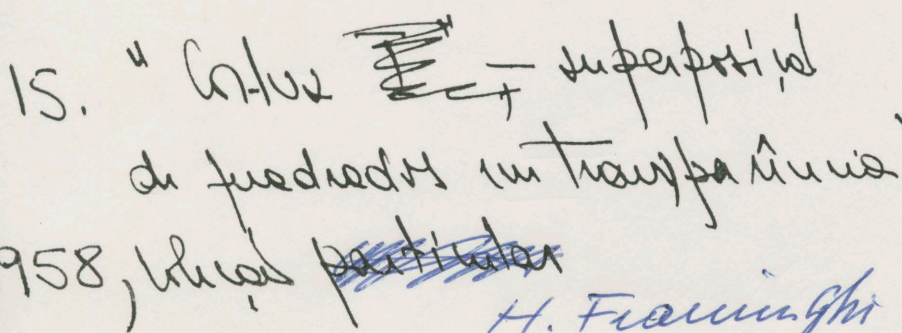 15. "Corluz – superposição
de quadrados em transparência"
958, coleção particular
H. Fiaminghi